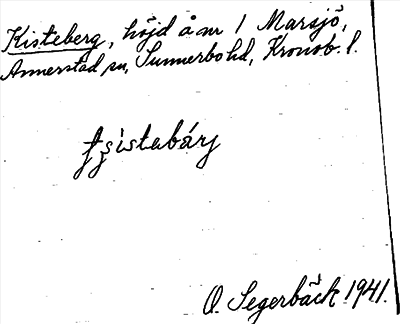 Kisteberg, höjd å nr 1 Marsjö,
Annerstad sn, Sunnerbo hd, Kronob. l.
O. Segerbäck 1941.